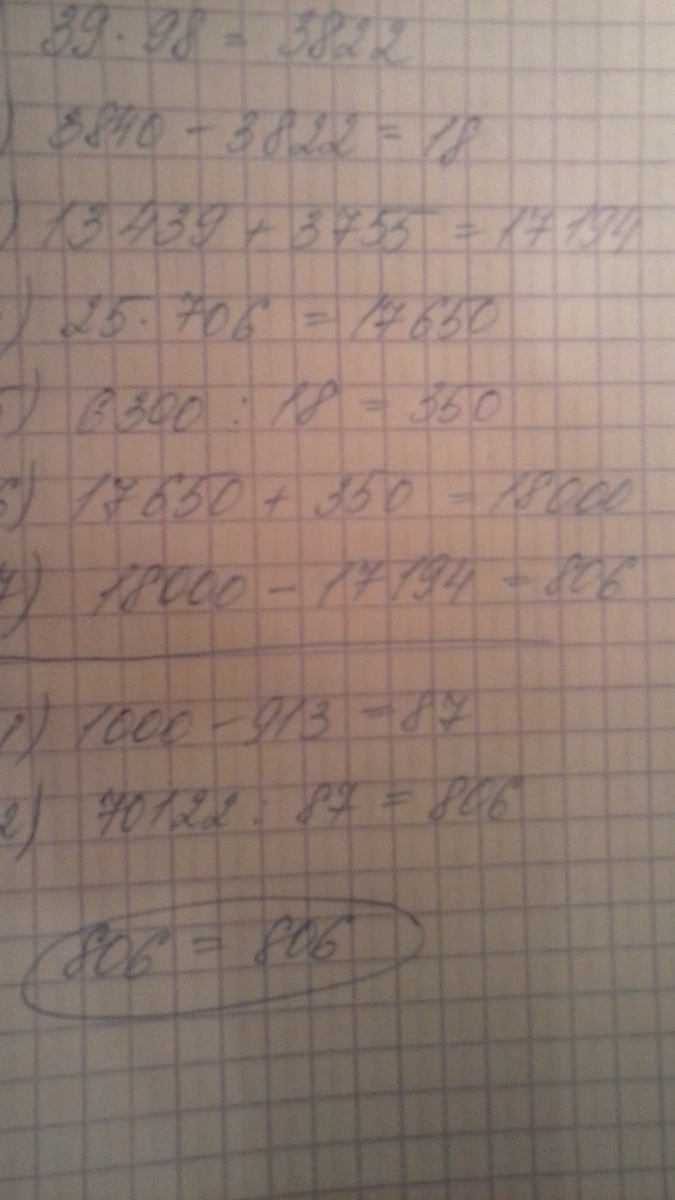 39 · 98 = 3822
) 3840 - 3822 = 18
) 13439 + 3755 = 17194
) 25 · 706 = 17650
5) 6300 : 18 = 350
6) 17650 + 350 = 18000
7) 18000 - 17194 = 806
1) 1000 - 913 = 87
2) 70122 : 87 = 806
806 = 806